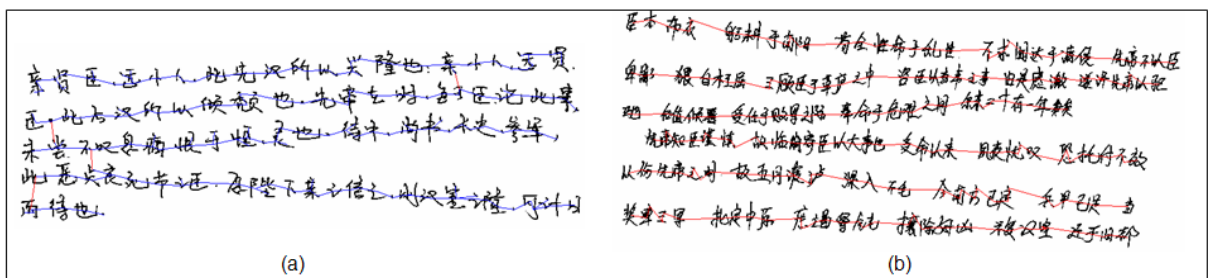 亲贤臣,远小人,此先汉所以兴隆也.亲小人,远贤
臣,此后汉所以倾颓也.先帝在时,每于臣论此事,
未尝不叹息痛恨于桓,灵也.侍中,尚书,长史,参军,
此悉贞良死节之臣 愿陛下亲之信之,则汉室之隆,可计日
而待也.
(a)
臣本布衣 躬耕于南阳 苟全性命于乱世 不求闻达于诸侯 先帝不以臣
卑鄙 猥自枉屈 三顾臣于草庐之中 咨臣以当世之事 由是感激 遂许先帝以驱
驰 后值倾覆 受任于败军之际 奉命于危难之间 尔来二十有一年矣
先帝知臣谨慎 故临崩寄臣以大事也 受命以来 夙夜忧叹 恐托付不效
以伤先帝之明 故五月渡泸 深入不毛 今南方已定 兵甲已足 当
奖率三军 北定中原 庶竭驽钝 攘除奸凶 兴复汉室 还于旧都
(b)